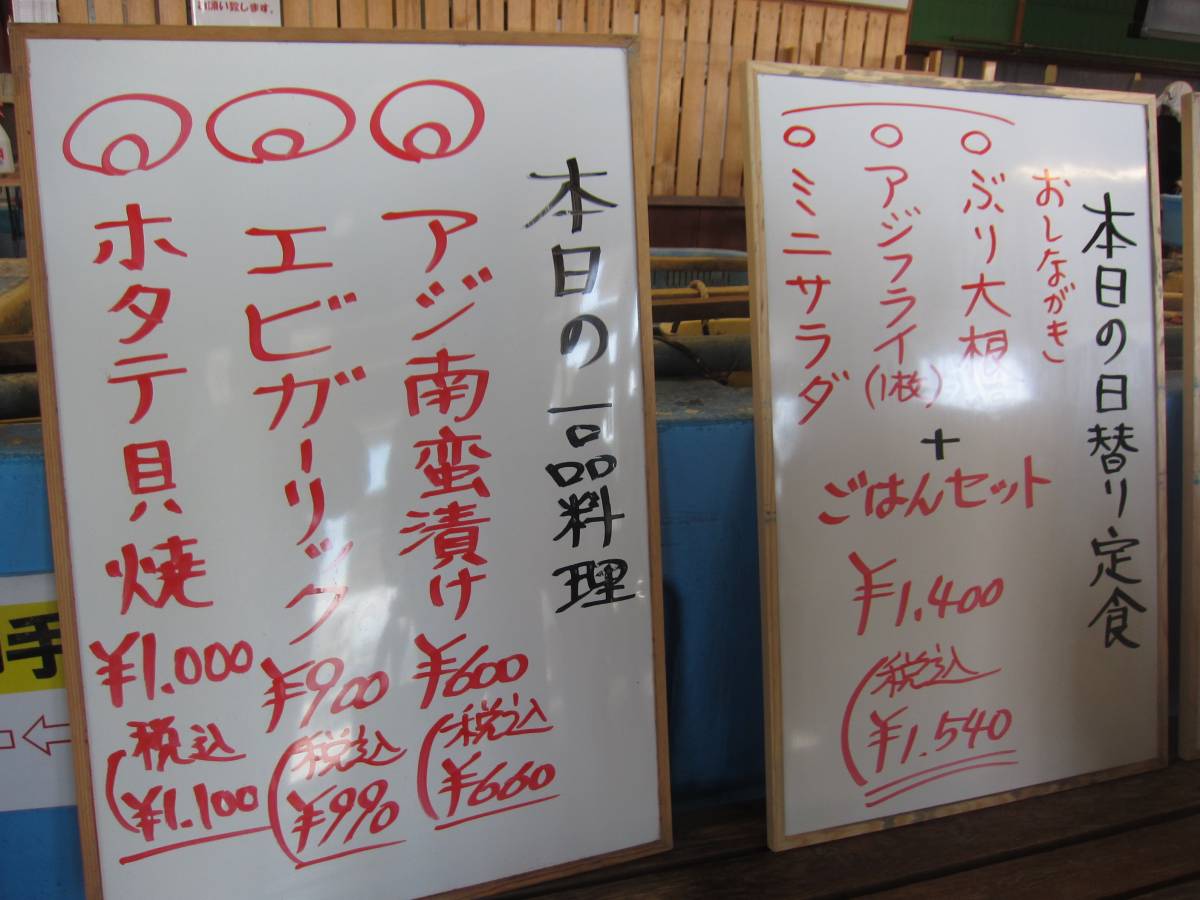 お願い致します。
本日の一品料理
アジ南蛮漬け
¥600
(税込
¥660
エビガーリック
¥900
(税込
¥990
ホタテ貝焼
¥1.000
(税込
¥1.100
本日の日替り定食
おしながき
○ぶり大根
○アジフライ(1枚)
○ミニサラダ
+
ごはんセット
¥1.400
(税込
¥1.540
手